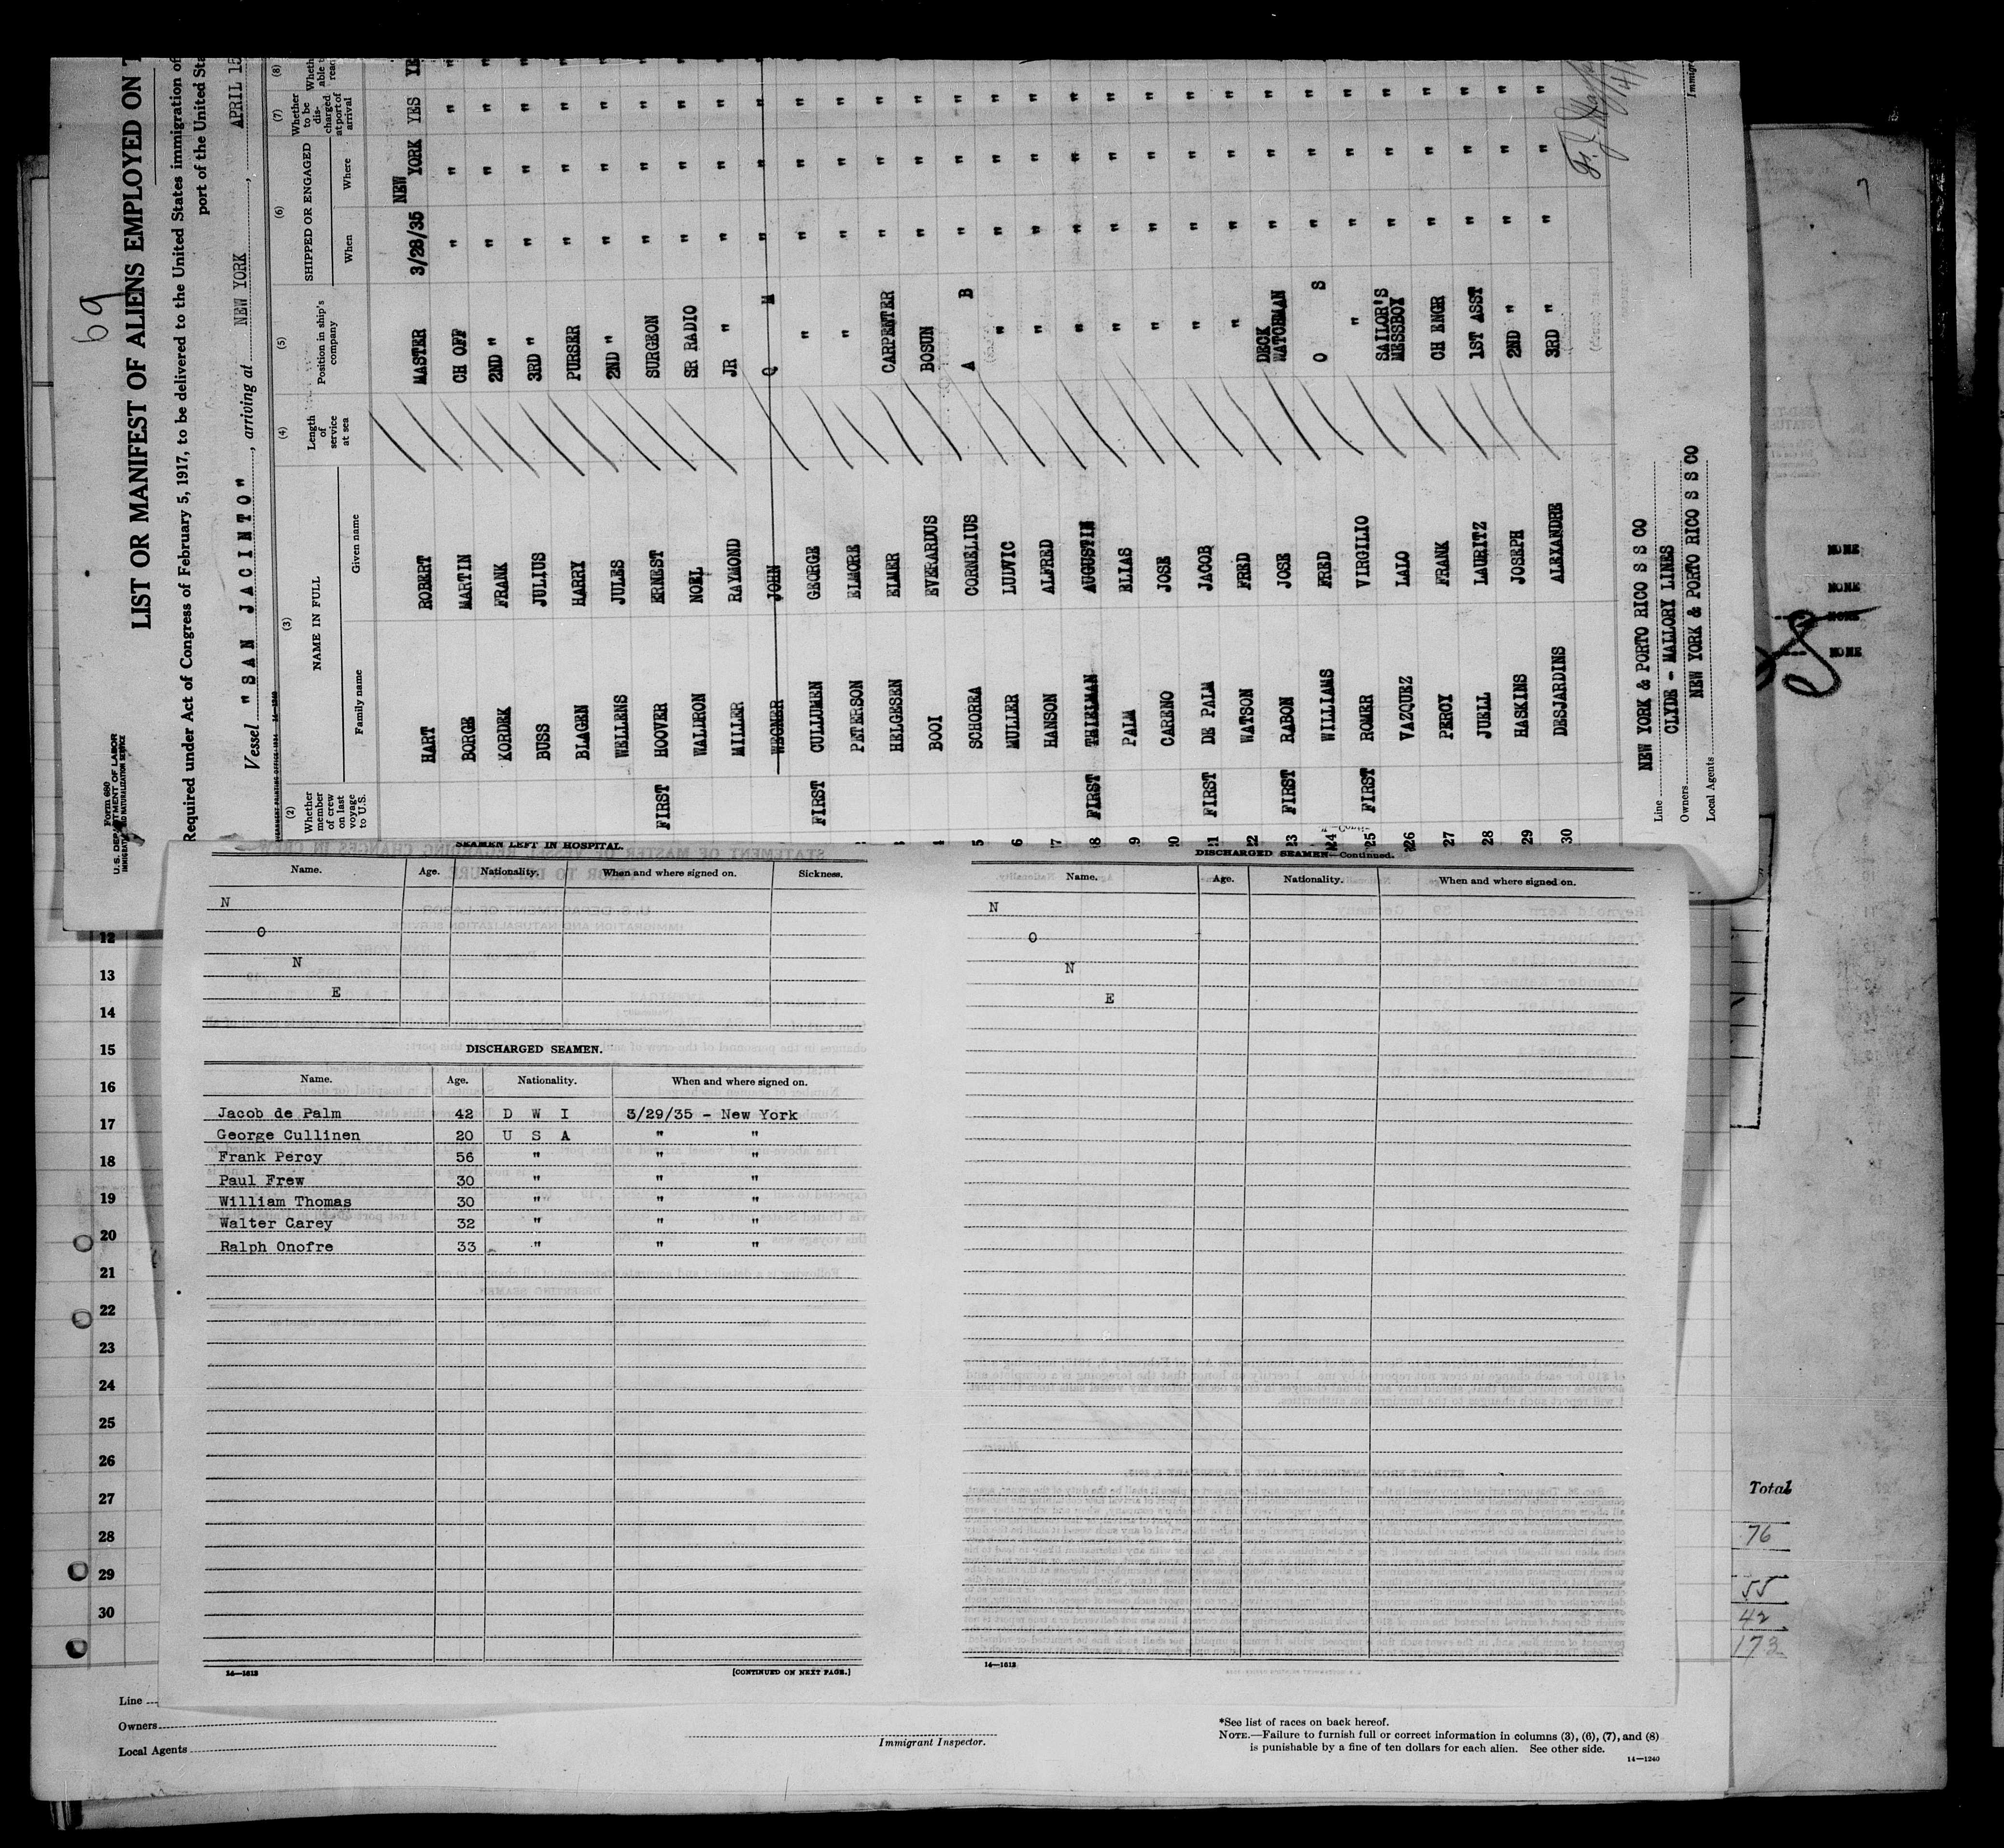 69
Form 680
U.S. DEPARTMENT OF LABOR
IMMIGRATION AND NATURALIZATION SERVICE
LIST OR MANIFEST OF ALIENS EMPLOYED ON
Required under Act of Congress of February 5, 1917, to be delivered to the United States immigration
port of the United
Vessel "SAN JACINTO", arriving at NEW YORK, APRIL 15
(2) (3) (4) (5) (6) (7) (8)
Whether member of crew on last voyage to U.S.
NAME IN FULL
Family name Given name
Length of service at sea
Position in ship's company
SHIPPED OR ENGAGED
When Where
Whether to be discharged at port of arrival
HART ROBERT MASTER 3/28/35 NEW YORK YES
BORGE MARTIN CH OFF " " " "
KORDEK FRANK 2ND " " " " "
BUSS JULIUS 3RD " " " " "
BLAGEN HARRY PURSER " " " "
WELLENS JULES 2ND " " " " "
FIRST HOOVER ERNEST SURGEON " " " "
WALDRON NOEL SR RADIO " " " "
MILLER RAYMOND JR " " " " "
WEGNER JOHN Q M " " " "
FIRST CULLUMEN GEORGE " " " "
PETERSON ELMORE " " " "
HELGESEN ELMER CARPENTER " " "
BOOI EVERARDUS BOSUN " " "
5 SCHOREA CORNELIUS A B " " "
6 MULLER LUDVIC " " " "
7 HANSON ALFRED " " " "
8 FIRST THIELMAN AUGUSTIN " " " "
9 PALM ELIAS " " " "
10 CARENO JOSE " " " "
11 FIRST DE PALM JACOB " " " "
12 WATSON FRED " " " "
13 FIRST RABON JOSE DECK WATCHMAN " " "
24 WILLIAMS FRED O S " " "
25 FIRST ROMER VIRGILIO " " " "
26 VAZQUEZ LALO SAILOR'S MESSBOY " " "
27 PERCY FRANK CH ENGR " " "
28 JUELL LAURITZ 1ST ASST " " "
29 HASKINS JOSEPH 2ND " " " "
30 DESJARDINS ALEXANDRE 3RD " " " "
Line NEW YORK & PORTO RICO S S CO
Owners CLYDE - MALLORY LINES
Local Agents NEW YORK & PORTO RICO S S CO
SEAMEN LEFT IN HOSPITAL.
Name. Age. Nationality. When and where signed on. Sickness.
N
O
N
E
DISCHARGED SEAMEN.
Name. Age. Nationality. When and where signed on.
Jacob de Palm 42 D W I 3/29/35 - New York
George Cullinen 20 U S A " "
Frank Percy 56 " " "
Paul Frew 30 " " "
William Thomas 30 " " "
Walter Carey 32 " " "
Ralph Onofre 33 " " "
14—1613 [CONTINUED ON NEXT PAGE.]
DISCHARGED SEAMEN—Continued.
Name. Age. Nationality. When and where signed on.
N
O
N
E
14—1613
12
13
14
15
16
17
18
19
20
21
22
23
24
25
26
27
28
29
30
NONE
NONE
NONE
NONE
Total
76
55
42
173
Line
Owners
Local Agents
Immigrant Inspector.
*See list of races on back hereof.
NOTE.—Failure to furnish full or correct information in columns (3), (6), (7), and (8)
is punishable by a fine of ten dollars for each alien. See other side.
14—1240